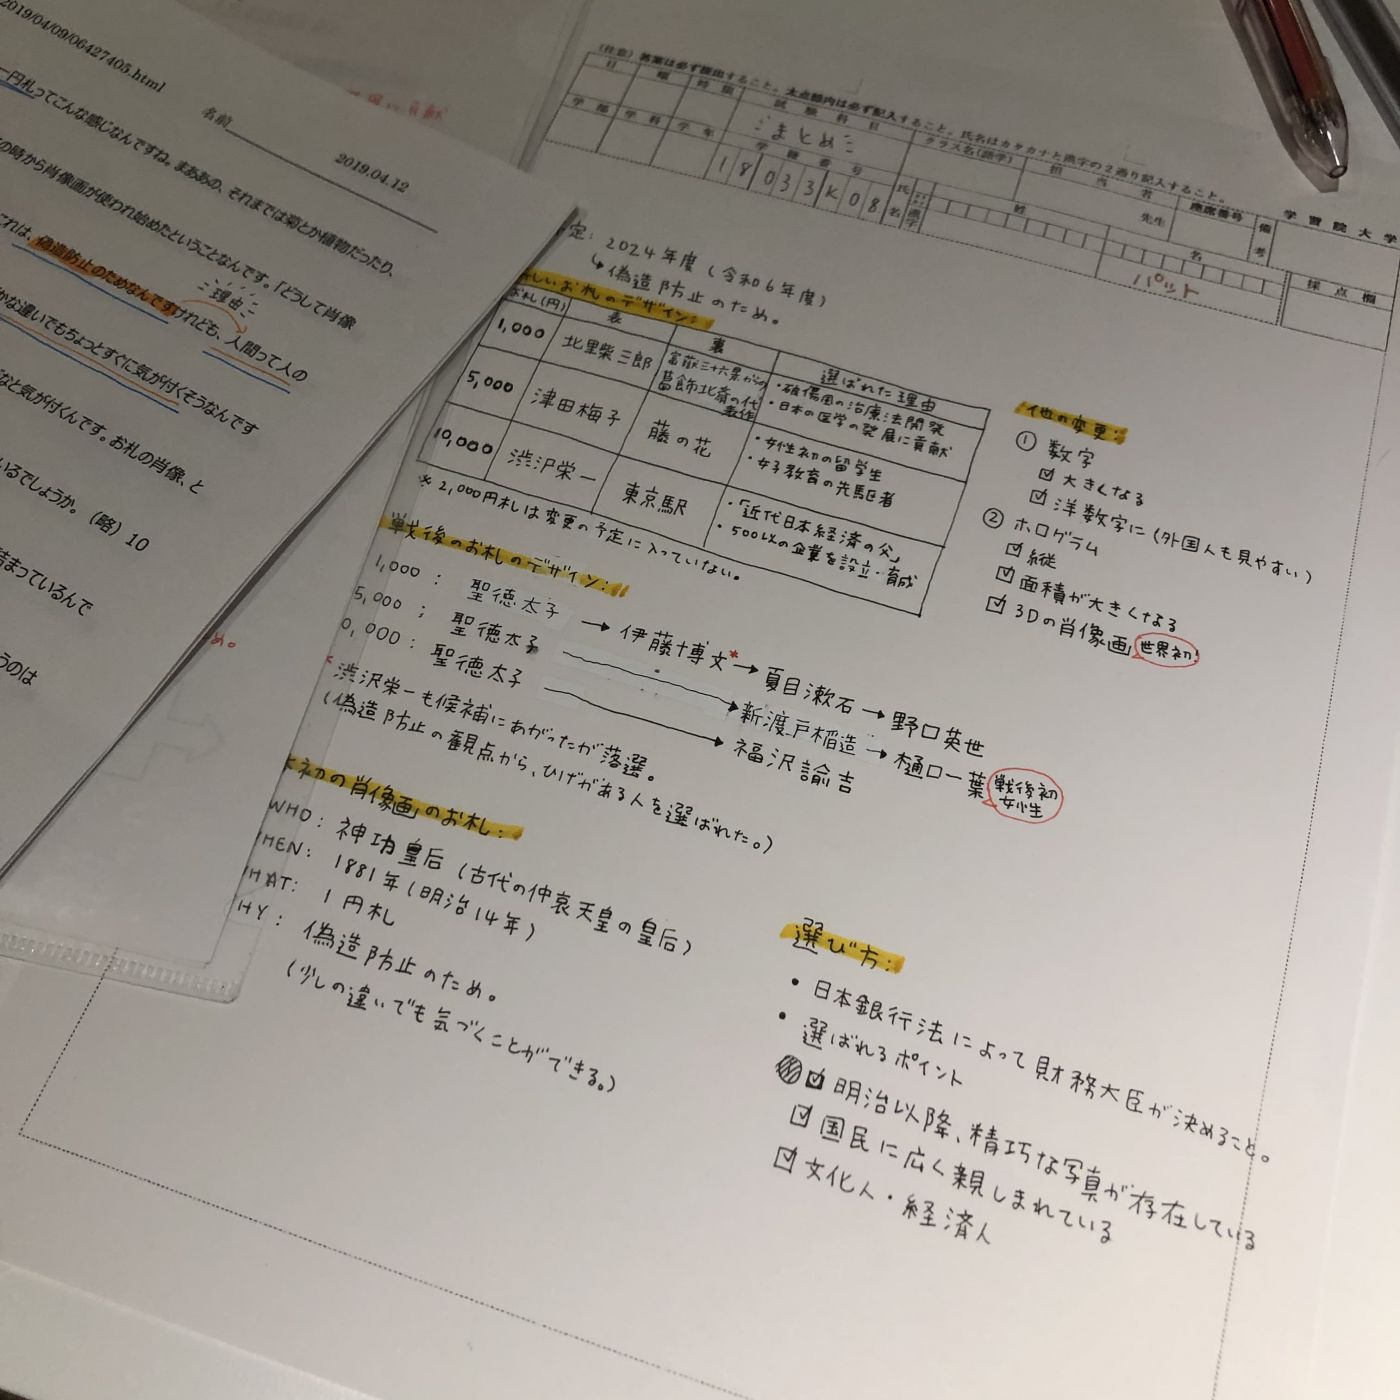 2019/04/09/06427405.html
名前
2019.04.12
一円札ってこんな感じなんですね。まああの、それまでは菊とか植物だったり、
の時から肖像画が使われ始めたということなんです。「どうして肖像
これは、偽造防止のためなんですけれども、人間って人の
理由
かな違いでもちょっとすぐに気が付くそうなんです
なと気が付くんです。お札の肖像、と
いるでしょうか。(略)10
詰まっているんで
うのは
め。
(注意) 答案は必ず提出すること。太点線内は必ず記入すること。氏名はカタカナと漢字の2通り記入すること。
日 曜 時限 試験科目 クラス名(語学) 担当者 座席番号 備考 学習院大学
まとめ
先生
学部 学科 学年 学籍番号 氏名 カナ 漢字 姓 名 採点欄
18033K08
パット
定: 2024年度(令和6年度)
↳偽造防止のため。
しいお札のデザイン:
お札(円) 表 裏 選ばれた理由
1,000 北里柴三郎 富嶽三十六景からの葛飾北斎の代表作 ・破傷風の治療法開発 ・日本の医学の発展に貢献
5,000 津田梅子 藤の花 ・女性初の留学生 ・女子教育の先駆者
10,000 渋沢栄一 東京駅 ・「近代日本経済の父」 ・500以の企業を設立・育成
※2,000円札は変更の予定に入っていない。
他の変更:
① 数字
☑ 大きくなる
☑ 洋数字に(外国人も見やすい)
② ホログラム
☑ 縦
☑ 面積が大きくなる
☑ 3Dの肖像画 世界初!
戦後のお札のデザイン:
1,000: 聖徳太子 → 伊藤博文* → 夏目漱石 → 野口英世
5,000: 聖徳太子 → 新渡戸稲造 → 樋口一葉 戦後初女性
0,000: 聖徳太子 → 福沢諭吉
*渋沢栄一も候補にあがったが落選。
(偽造防止の観点から、ひげがある人を選ばれた。)
初の肖像画のお札:
WHO: 神功皇后(古代の仲哀天皇の皇后)
HEN: 1881年(明治14年)
HAT: 1円札
HY: 偽造防止のため。
(少しの違いでも気づくことができる。)
選び方:
• 日本銀行法によって財務大臣が決めること。
• 選ばれるポイント
☑ 明治以降、精巧な写真が存在している
☑ 国民に広く親しまれている
☑ 文化人・経済人